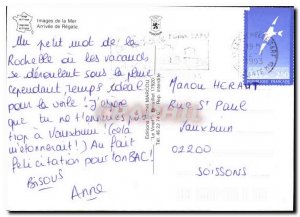 Images de la Mer
Arrivée de Régate
Un petit mot de la
Rochelle où les vacances
se déroulent sous la pluie
cependant temps idéal
pour la voile ! J'espère
que tu ne t'ennuies pas
trop à Vauxbuin ! (cela
m'étonnerait) Au fait
Félicitation pour ton BAC !
Bisous
Anne
REPUBLIQUE FRANÇAISE
1993
Manou HERAUT
Rue St Paul
Vauxbuin
02200
SOISSONS